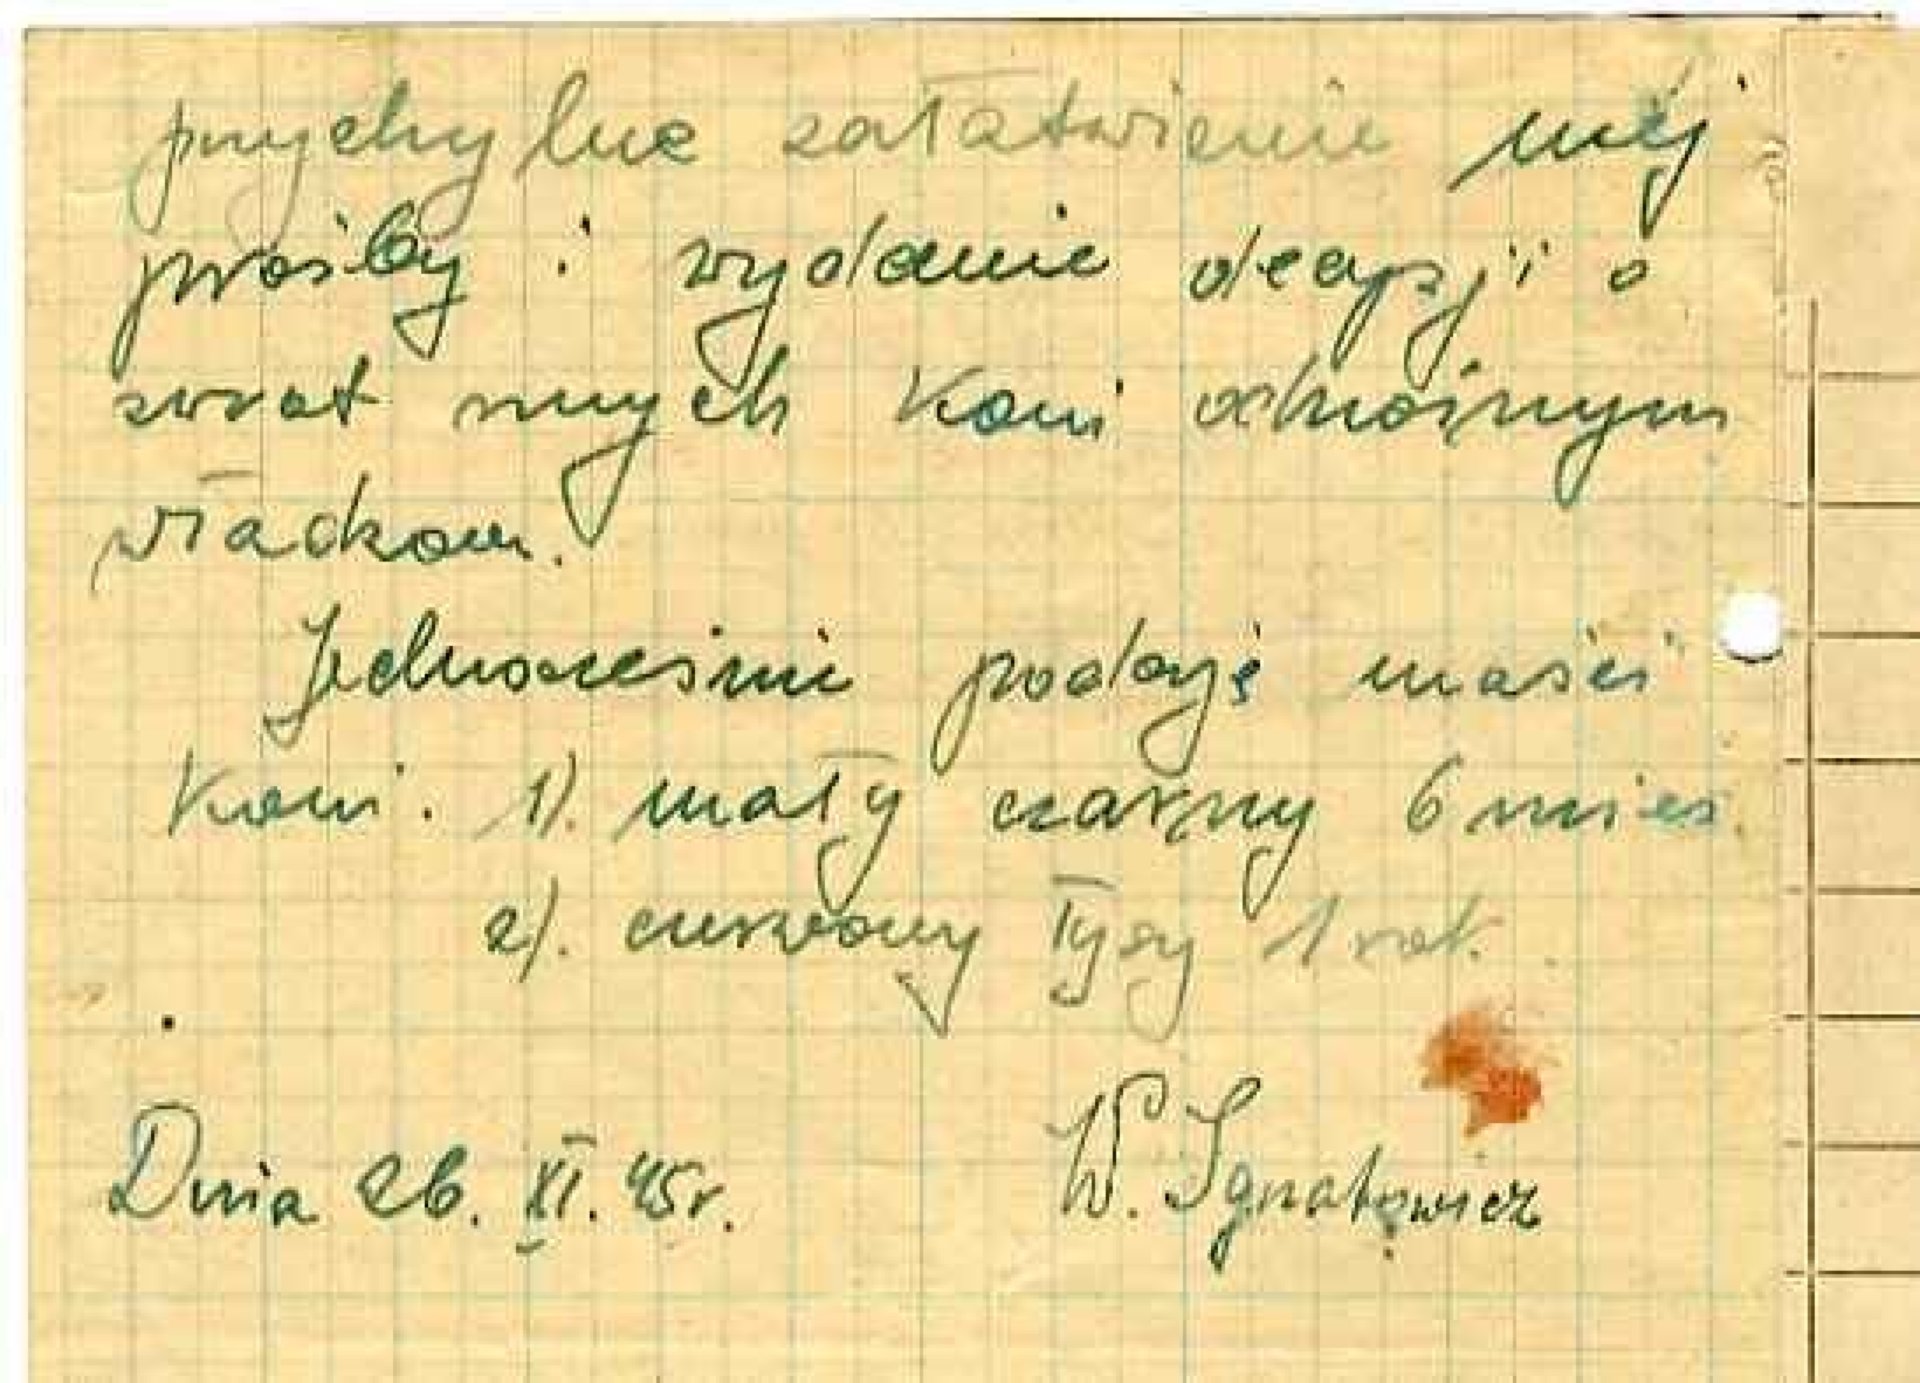 przychylne załatwienie mej
prośby i wydanie decyzji o
zwrot mych koni odnośnym
władzom.
Jednocześnie podaję maści
koni. 1). mały czarny 6 mies.
2). czerwony łysy 1 rok.
Dnia 26. XI. 45 r.
W. Ignatowicz